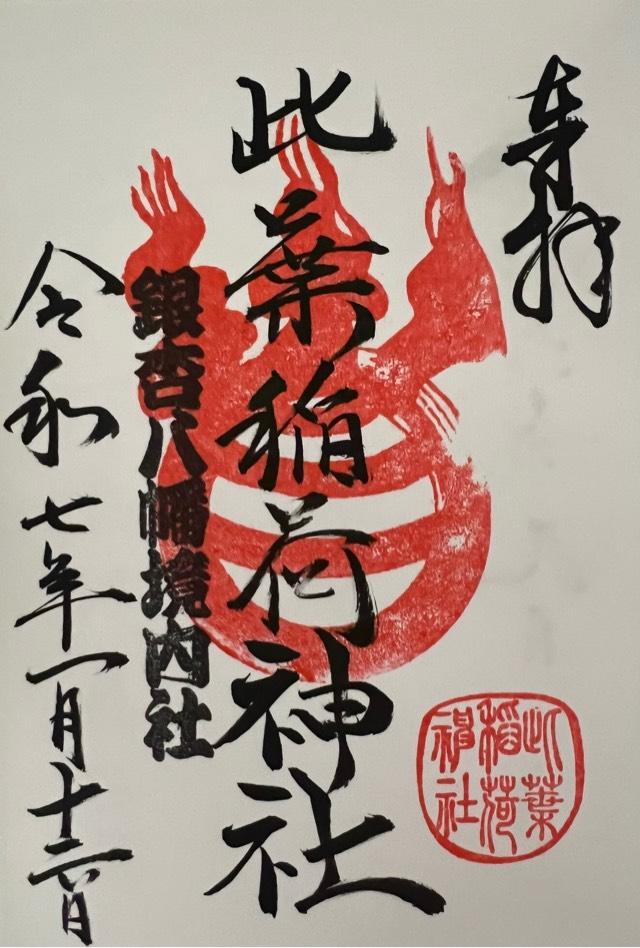 奉拝
此葉稲荷神社
銀杏八幡境内社
令和七年一月十二日
此葉
稲荷
神社